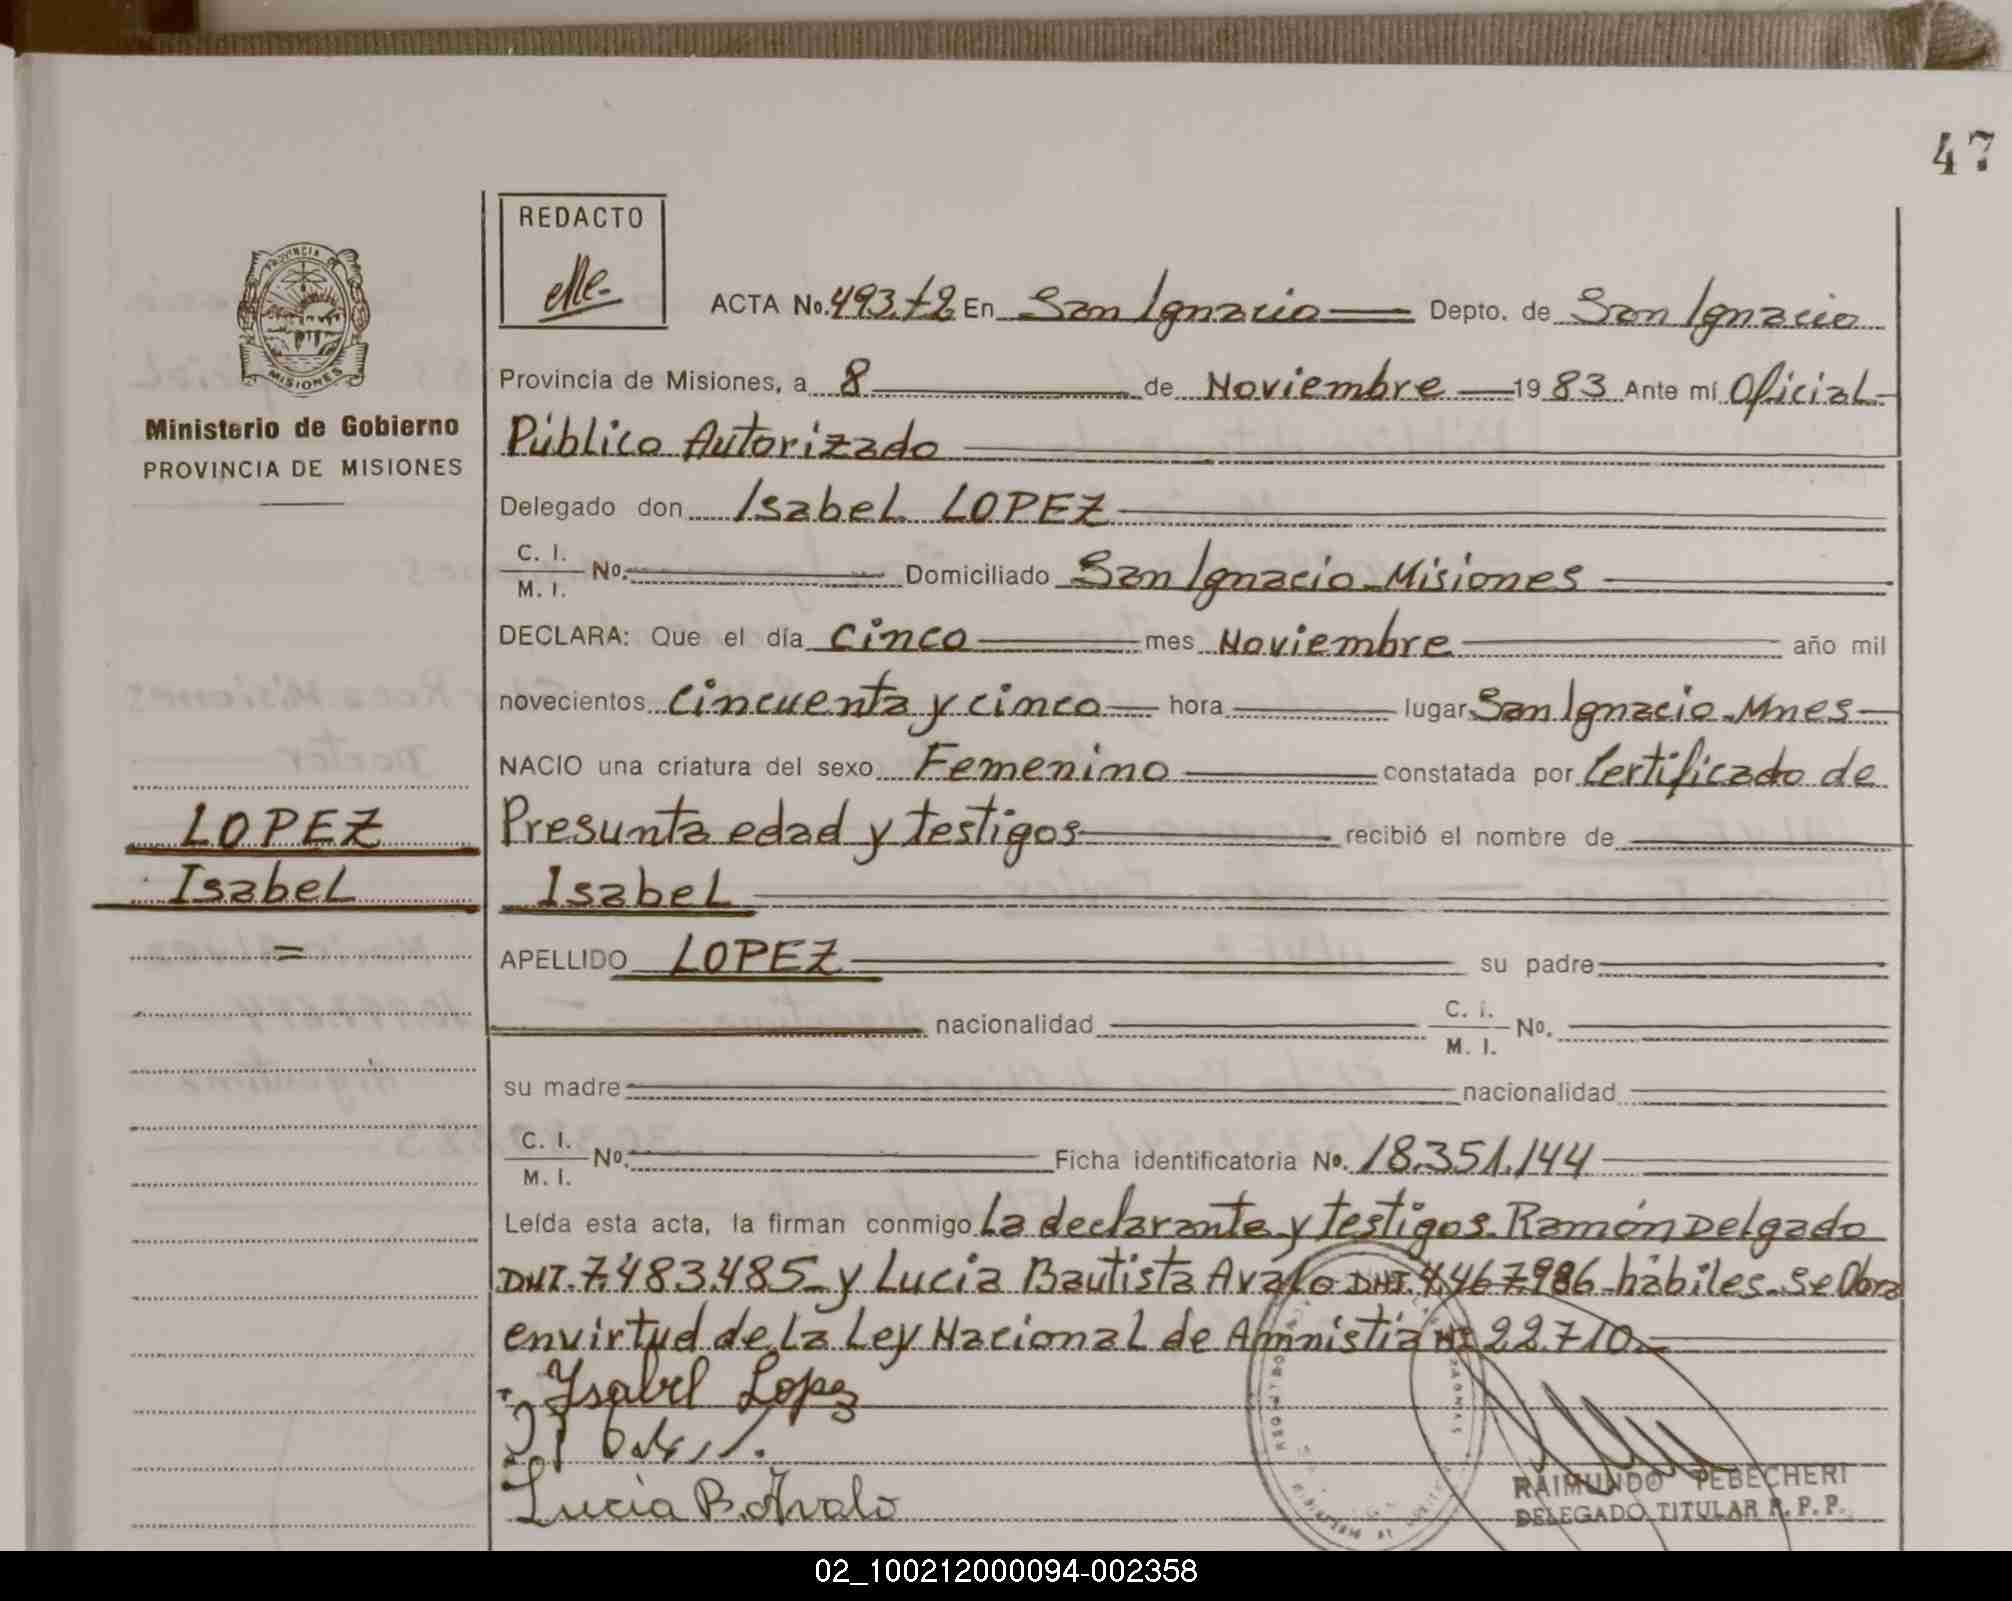 47
REDACTO
PROVINCIA DE
MISIONES
Ministerio de Gobierno
PROVINCIA DE MISIONES
ACTA No. 493.t2 En San Ignacio Depto. de San Ignacio
Provincia de Misiones, a 8 de Noviembre 1983 Ante mí Oficial
Público Autorizado
Delegado don Isabel LOPEZ
C. I. / M. I. No. Domiciliado San Ignacio - Misiones
DECLARA: Que el día cinco mes Noviembre año mil
novecientos cincuenta y cinco hora lugar San Ignacio - Mnes
NACIO una criatura del sexo Femenino constatada por Certificado de
Presunta edad y testigos recibió el nombre de
Isabel
LOPEZ
Isabel
=
APELLIDO LOPEZ su padre
nacionalidad C. I. / M. I. No.
su madre nacionalidad
C. I. / M. I. No. Ficha identificatoria No. 18.351.144
Leída esta acta, la firman conmigo La declarante y testigos. Ramón Delgado
DNI. 7.483.485 y Lucia Bautista Avalo DNI. 4.467.986 - hábiles. Se Obra
en virtud de la Ley Nacional de Amnistia Nº 22.710
Ysabel Lopez
Lucia B. Avalo
RAIMUNDO PEBECHERI
DELEGADO TITULAR R. P. P.
02_100212000094-002358